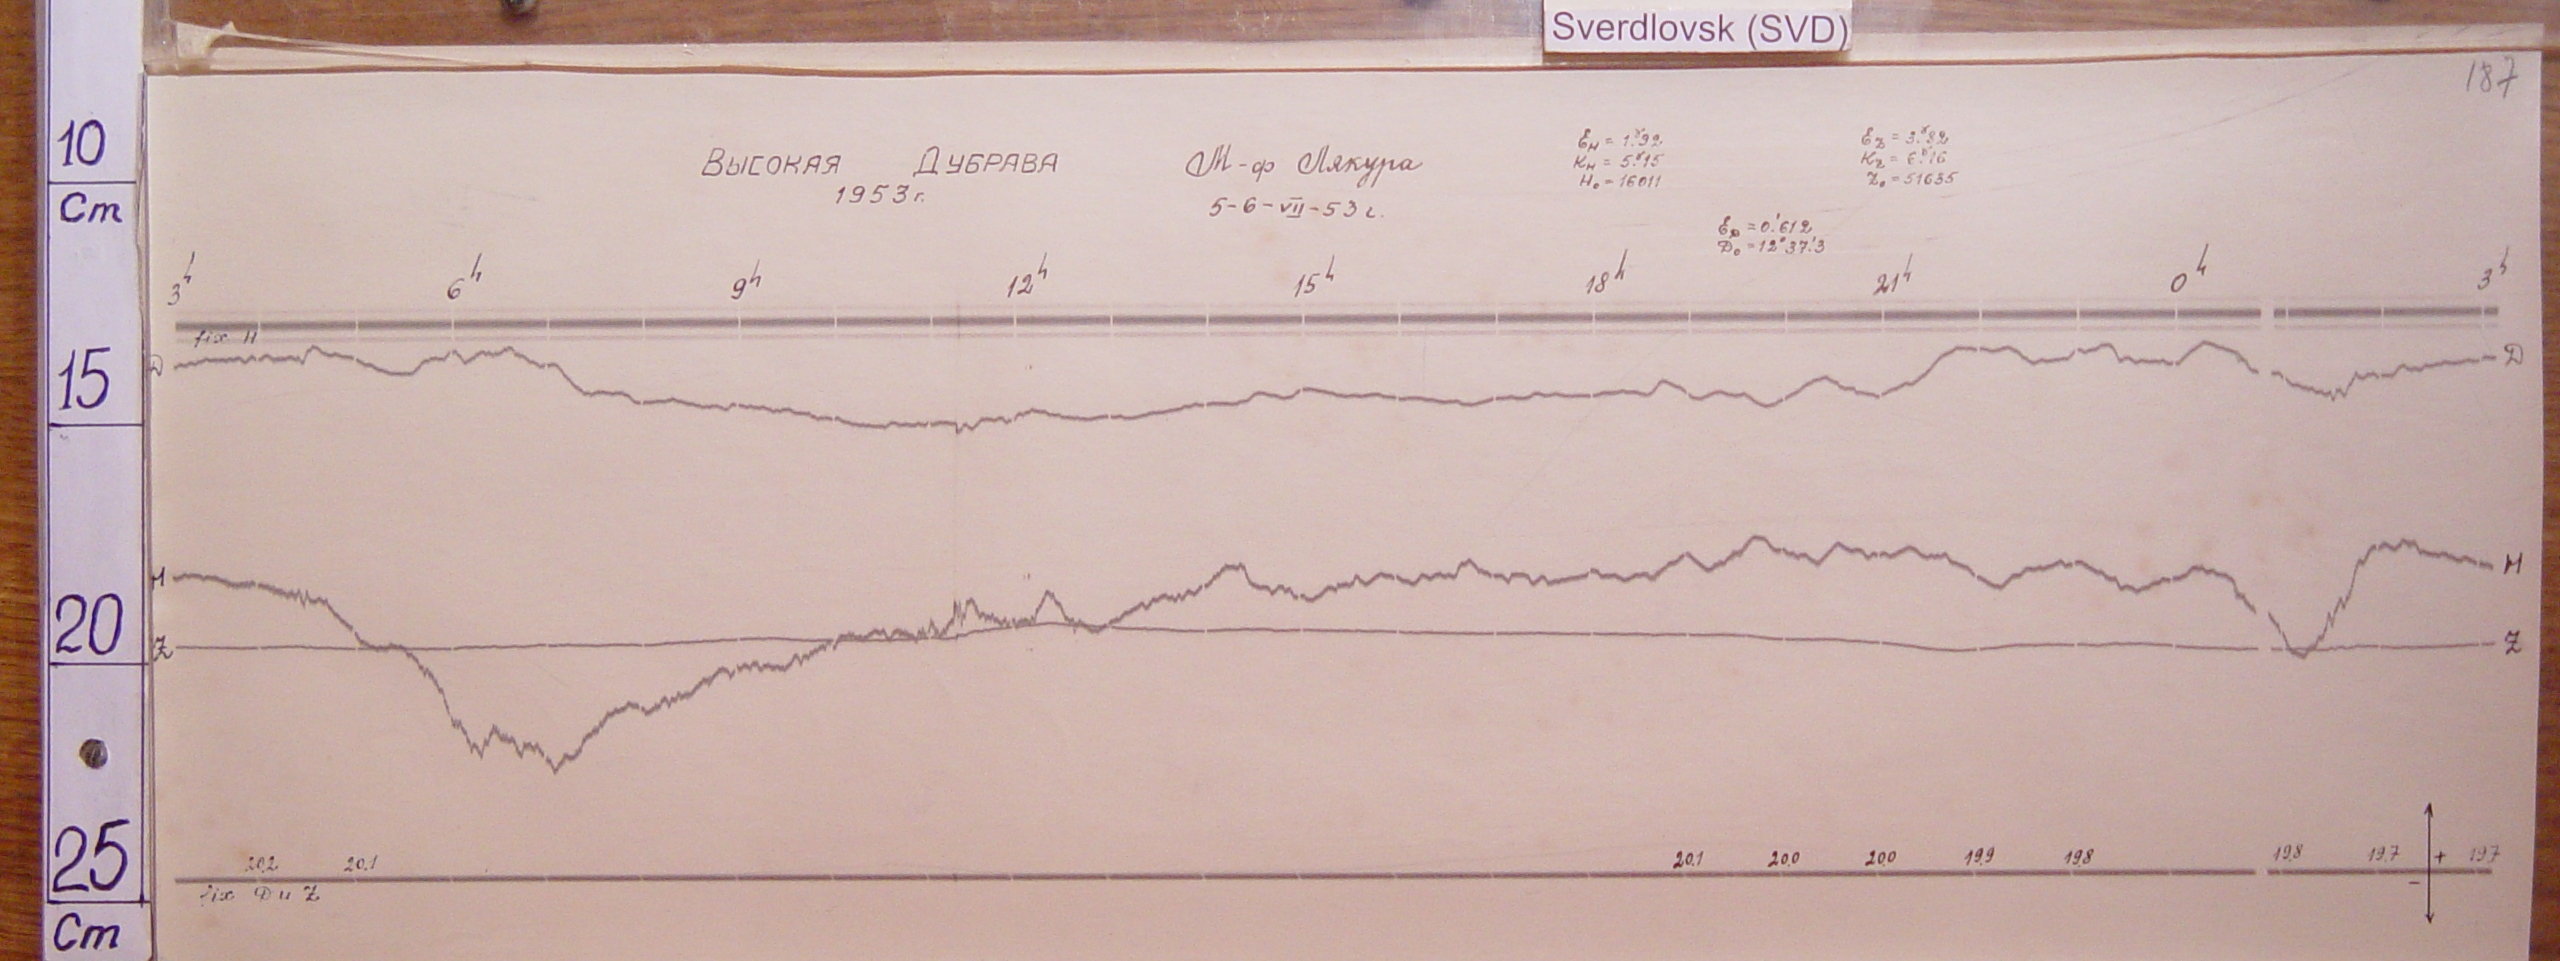 Sverdlovsk (SVD)
187
10
Cm
15
20
25
Cm
Высокая Дубрава
1953 г.
М-ф Лякура
5-6-VII-53 г.
Ɛн = 1.ˠ92
Kн = 5.ˠ15
H₀ = 16011
Ɛz = 3.ˠ82
Kz = 6.ˠ16
Z₀ = 51635
ƐD = 0.′612
D₀ = 12°37.′3
3ʰ 6ʰ 9ʰ 12ʰ 15ʰ 18ʰ 21ʰ 0ʰ 3ʰ
fix H
D D
H H
Z Z
20.2 20.1 20.1 20.0 20.0 19.9 19.8 19.8 19.7 + 19.7
−
fix D и Z